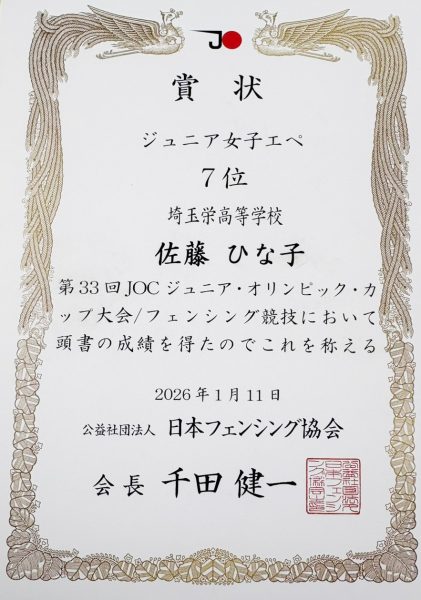 賞状
ジュニア女子エペ
7位
埼玉栄高等学校
佐藤 ひな子
第33回JOCジュニア・オリンピック・カ
ップ大会/フェンシング競技において
頭書の成績を得たのでこれを称える
2026年1月11日
公益社団法人 日本フェンシング協会
会長 千田健一